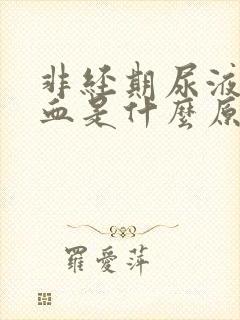 非經期尿液
血是什麼原
羅愛萍